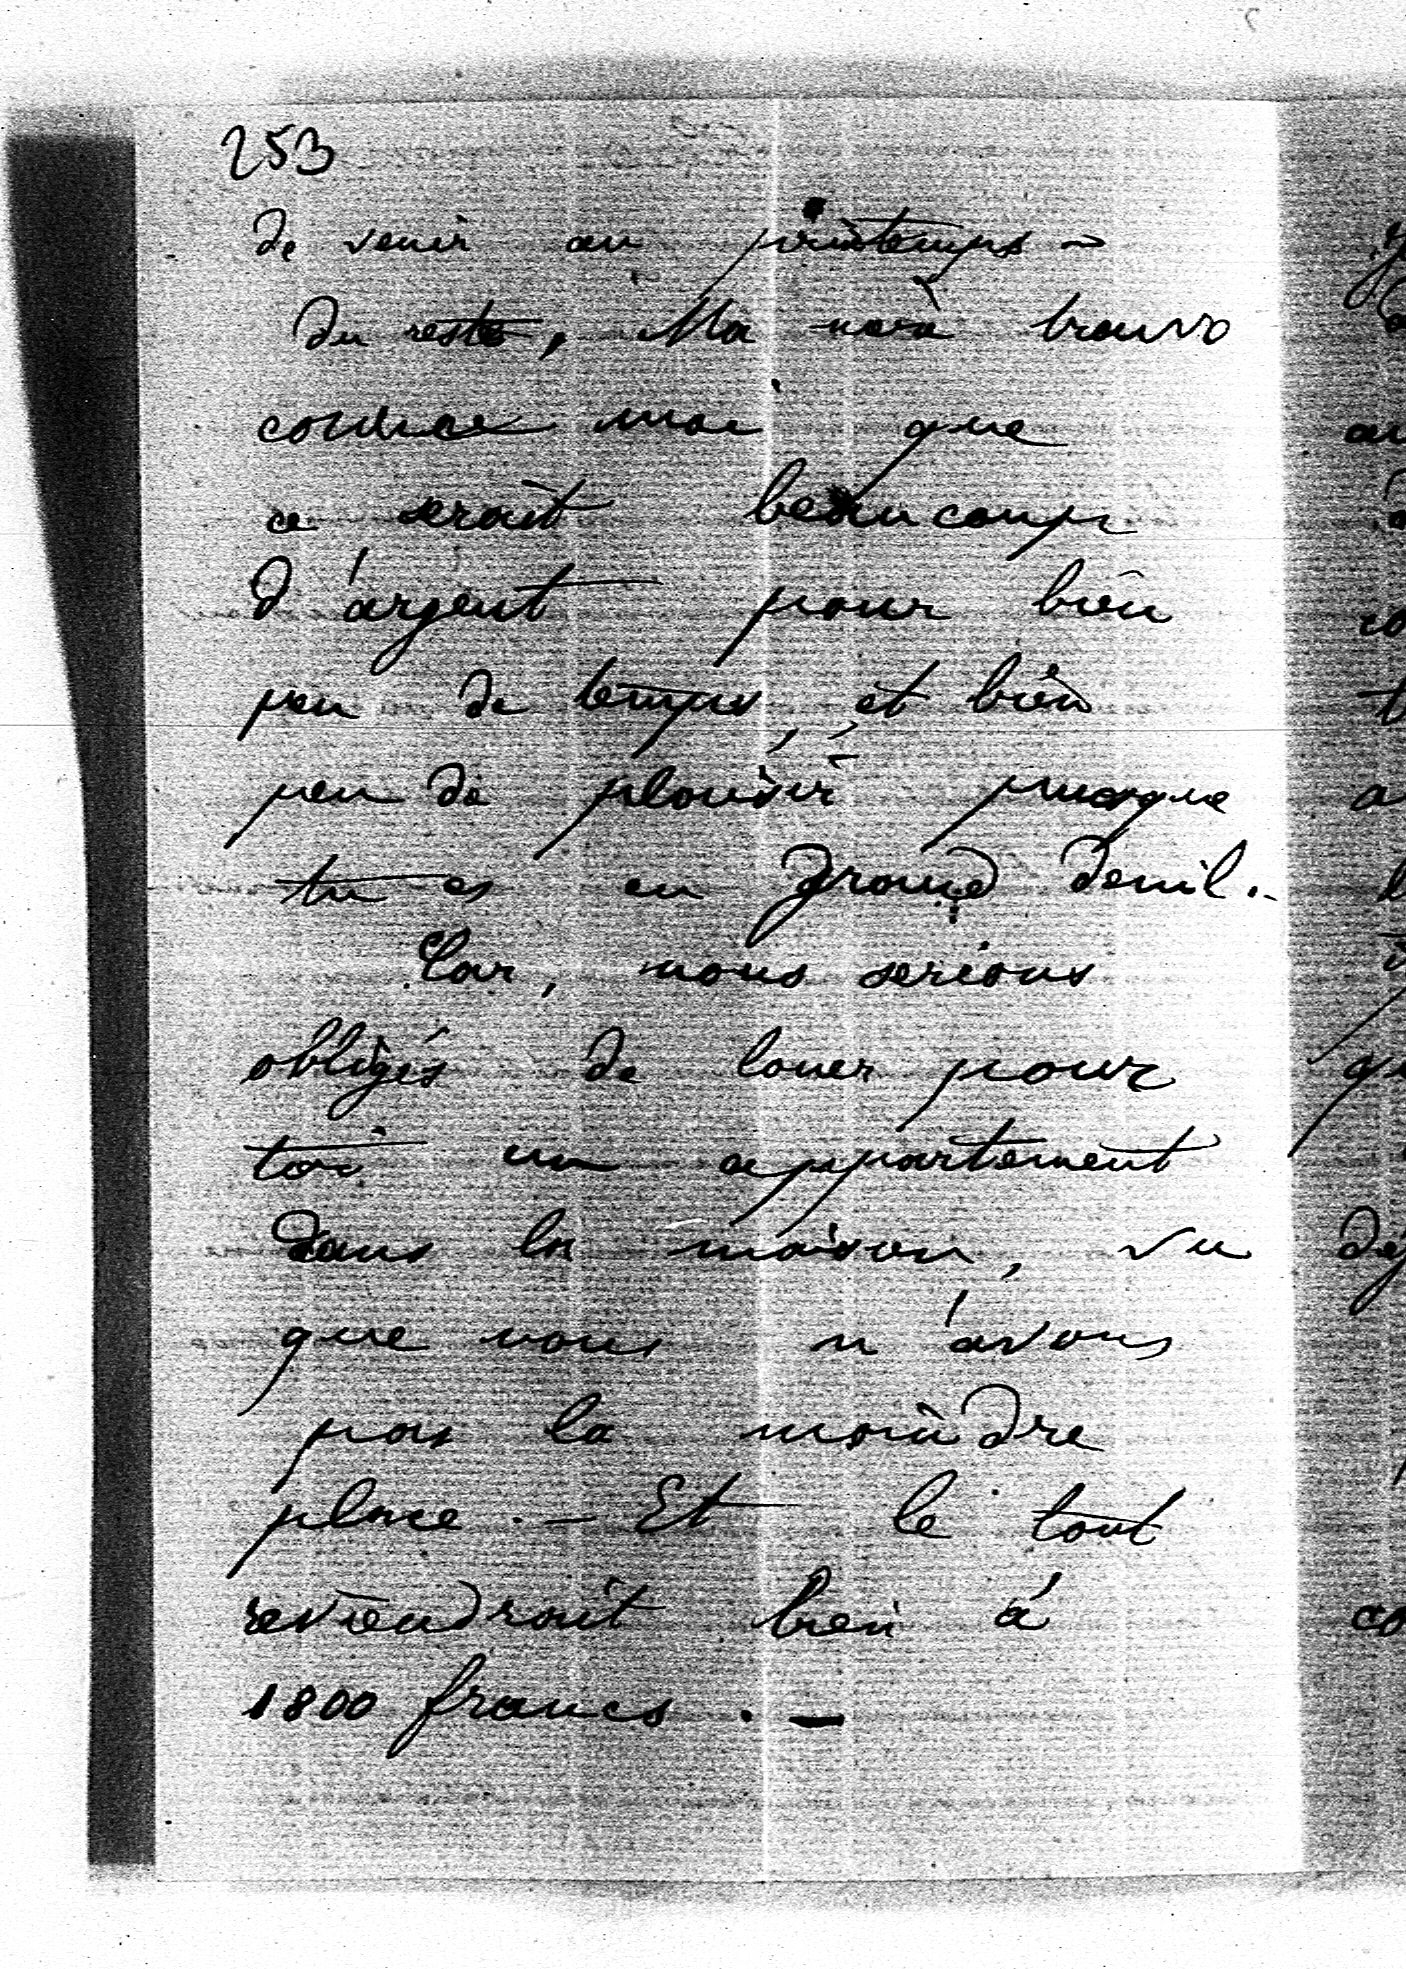 253
de venir au printemps -
du reste, Ma mère trouve
comme moi que
ce serait beaucoup
d'argent pour bien
peu de temps, et bien
peu de plaisir puisque
tu es en grand deuil.-
Car, nous serions
obligés de louer pour
toi un appartement
dans la maison, vu
que nous n'avons
pas la moindre
place. - Et le tout
reviendrait bien à
1800 francs. -